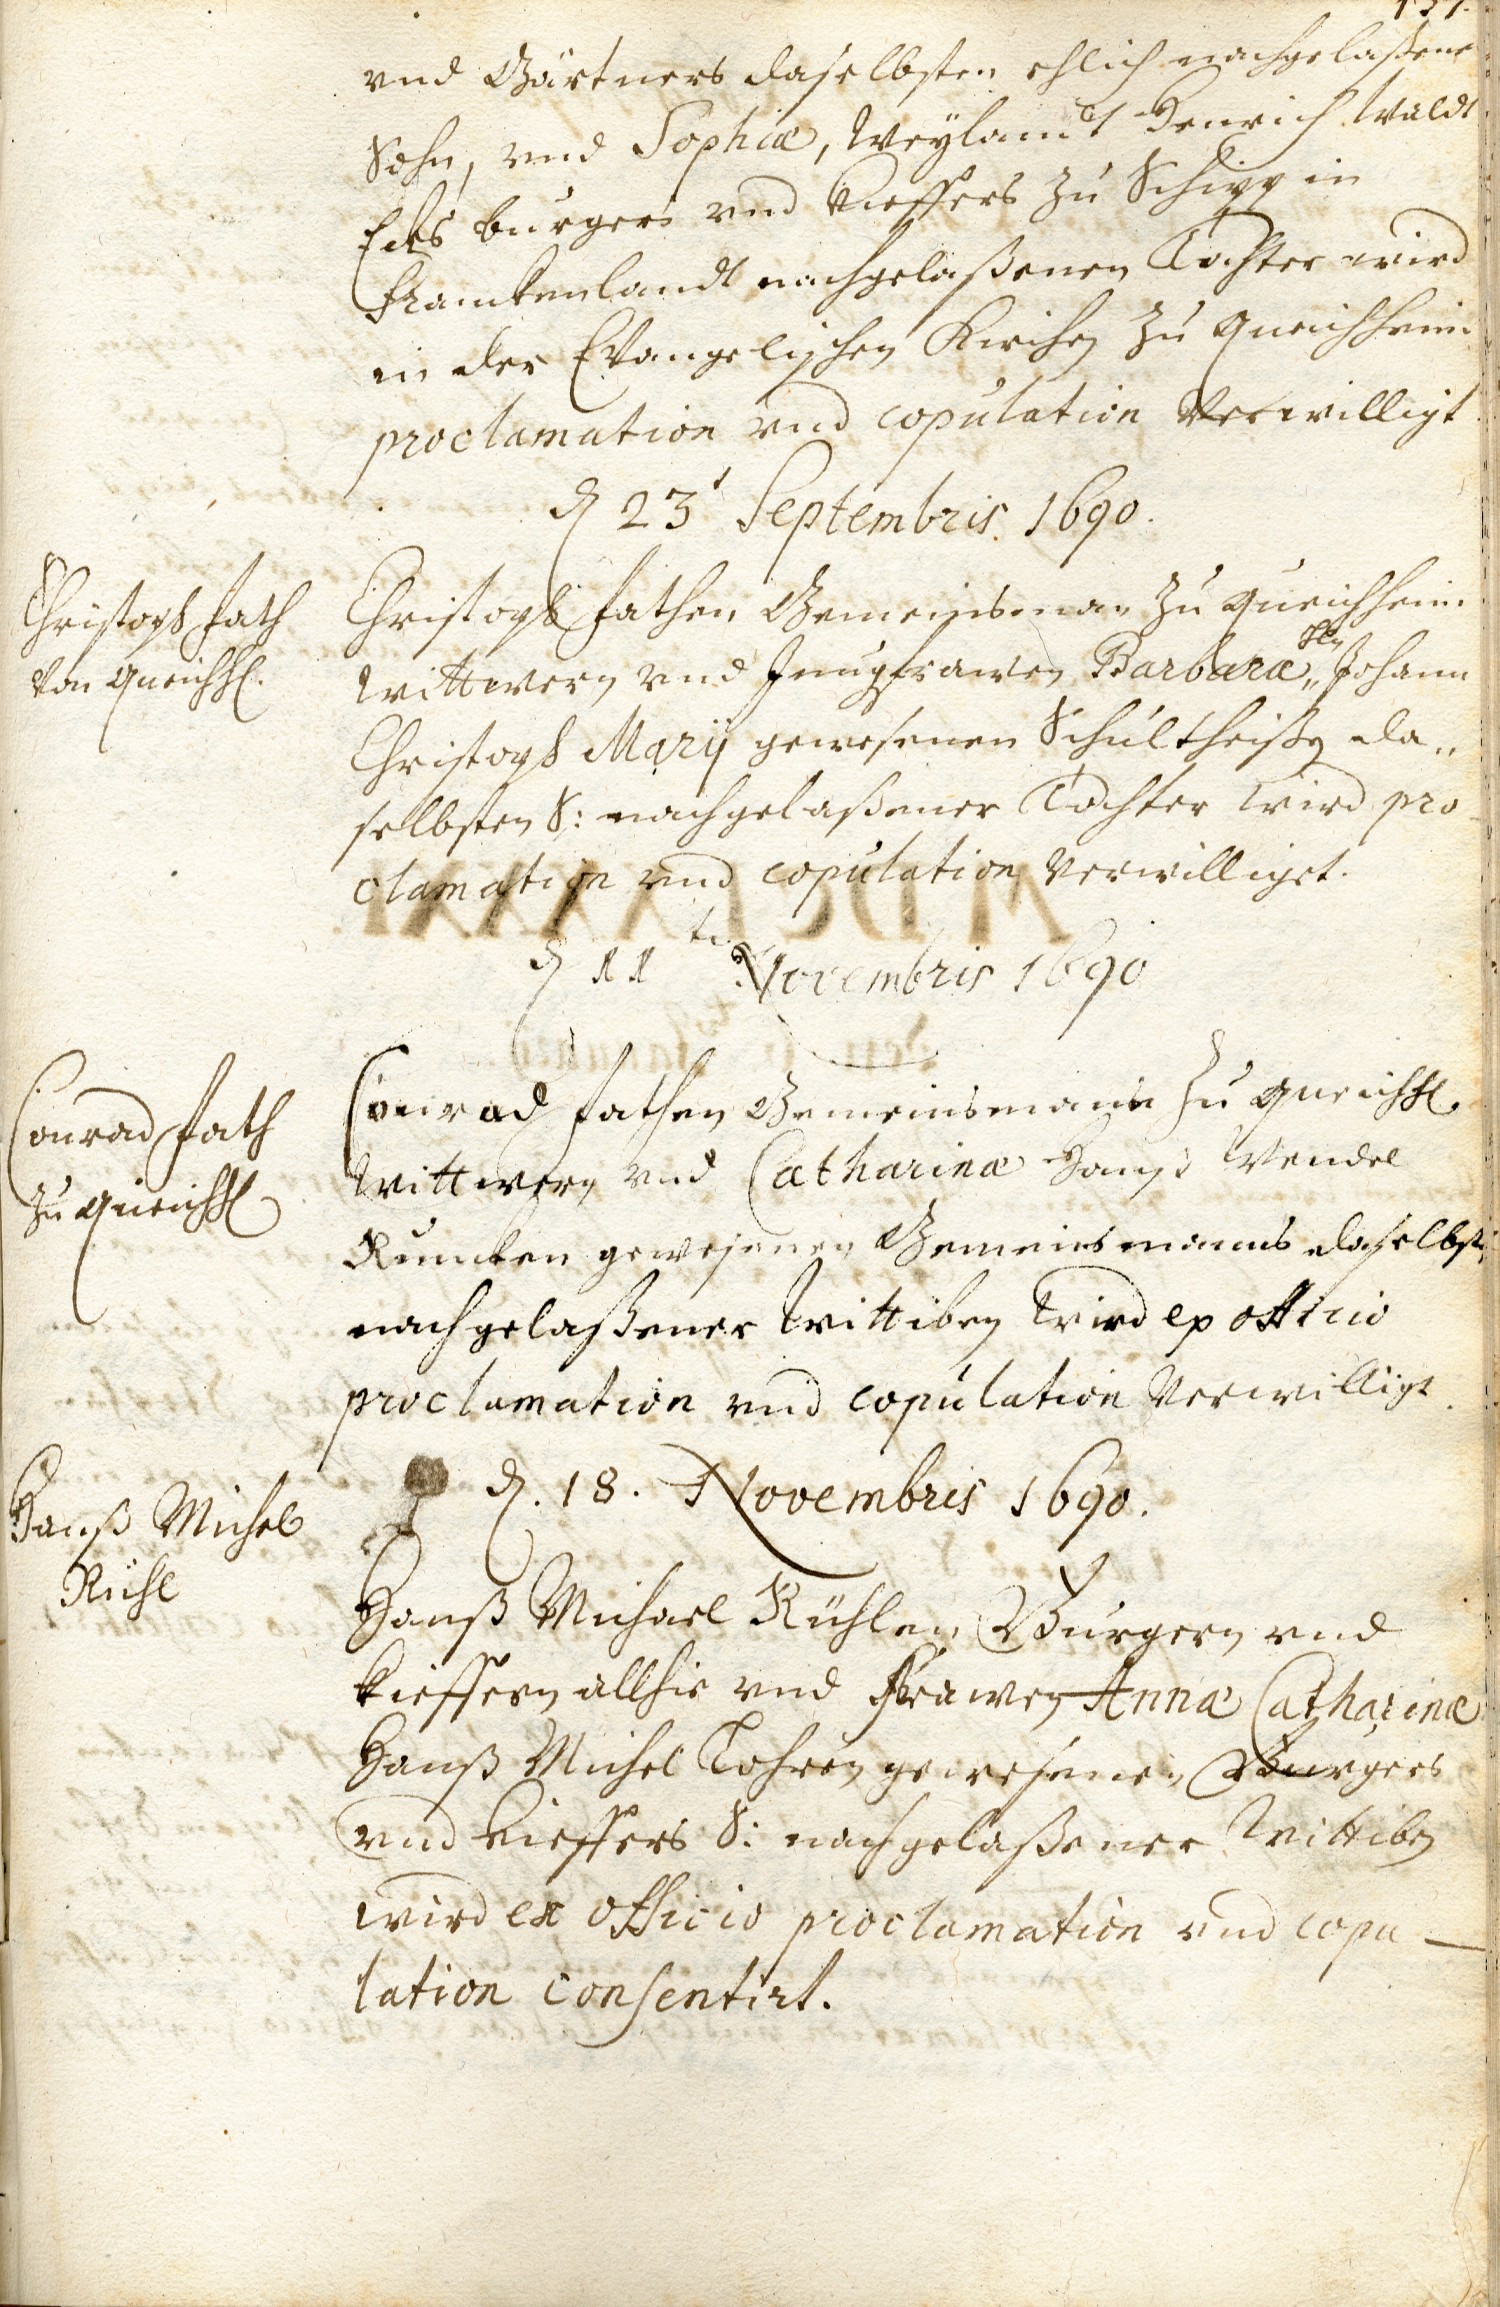 137.
vnd Gärtners daselbsten ehlich nachgelaßene
Sohn, vnd Sophiæ, Weylandt Henrich Waldt
Ecks burgers vnd Kieffers zu Schipp in
Franckenlandt nachgelaßenen Tochter wird
in der Evangelischen Kirchen zu Queichheim
proclamation vnd copulation Verwilligt
d. 23t Septembris. 1690.
Christoph Fath
Von Queichh.
Christoph Fathen Gemeinsman zu Queichheim
Wittwern vnd Jungfrawen Barbaræ,, Johann
Christoph Marÿ gewesenen Schultheißen da,,
selbsten S: nachgelaßener Tochter wird pro
clamation vnd copulation Verwilliget.
d 11 ten Novembris 1690
Conrad Fath
zu Queichh
Conrad Fathen Gemeinsmann zu Queichh.
Wittwern vnd Catharinæ Hanß Wendel
Kuncken gewesenen Gemeinsmanns daselbst
nachgelaßener Wittiben Wird ex officio
proclamation vnd copulation Verwilligt.
d. 18. Novembris 1690.
Hanß Michel
Rühl
Hanß Michael Rühlen Burgern vnd
Kieffern allhie vnd Frawen Annæ Catharinæ
Hanß Michel Tohren gewesenen Burgers
vnd Kieffers S: nachgelaßener Wittiben
wird ex officio proclamation vnd copu
lation consentirt.